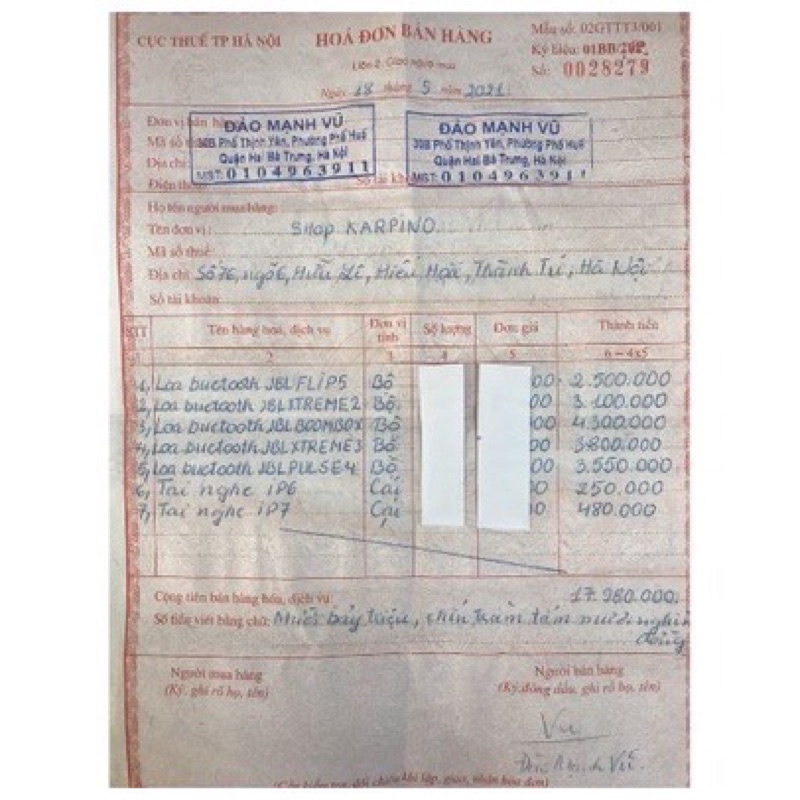 CỤC THUẾ TP HÀ NỘI
HOÁ ĐƠN BÁN HÀNG
Mẫu số: 02GTTT3/001
Ký hiệu: 01BB/20P
Liên 2: Giao người mua
Số: 0028279
Ngày 18 tháng 5 năm 2021
Đơn vị bán hàng
ĐÀO MẠNH VŨ
ĐÀO MẠNH VŨ
Mã số
30B Phố Thịnh Yên, Phường Phố Huế
30B Phố Thịnh Yên, Phường Phố Huế
Địa chỉ
Quận Hai Bà Trưng, Hà Nội
Quận Hai Bà Trưng, Hà Nội
Điện thoại
MST: 0104963911
Số tài kh
MST: 0104963911
Họ tên người mua hàng:
Tên đơn vị: Shop KARPINO
Mã số thuế:
Địa chỉ: Số 76, ngõ 6, Hữu Lê, Hiếu Hoà, Thành Trí, Hà Nội
Số tài khoản:
STT Tên hàng hóa, dịch vụ Đơn vị tính Số lượng Đơn giá Thành tiền
1 2 3 4 5 6 = 4x5
1, Loa buctooth JBL FLIP5 Bộ 00 2.500.000
2, Loa buctooth JBL XTREME2 Bộ 00 3.100.000
3, Loa buctooth JBL BOOMBOX Bộ 00 4.300.000
4, Loa buctooth JBL XTREME3 Bộ 00 3.800.000
5, Loa buctooth JBL PULSE4 Bộ 00 3.550.000
6, Tai nghe iP6 Cái 00 250.000
7, Tai nghe iP7 Cái 00 480.000
Cộng tiền bán hàng hóa, dịch vụ: 17.980.000.
Số tiền viết bằng chữ: Mười bảy triệu, chín trăm tám mươi nghìn
đồng
Người mua hàng
Người bán hàng
(Ký, ghi rõ họ, tên)
(Ký, đóng dấu, ghi rõ họ, tên)
Vu
Đào Mạnh Vũ.
(Cần kiểm tra, đối chiếu khi lập, giao, nhận hóa đơn)